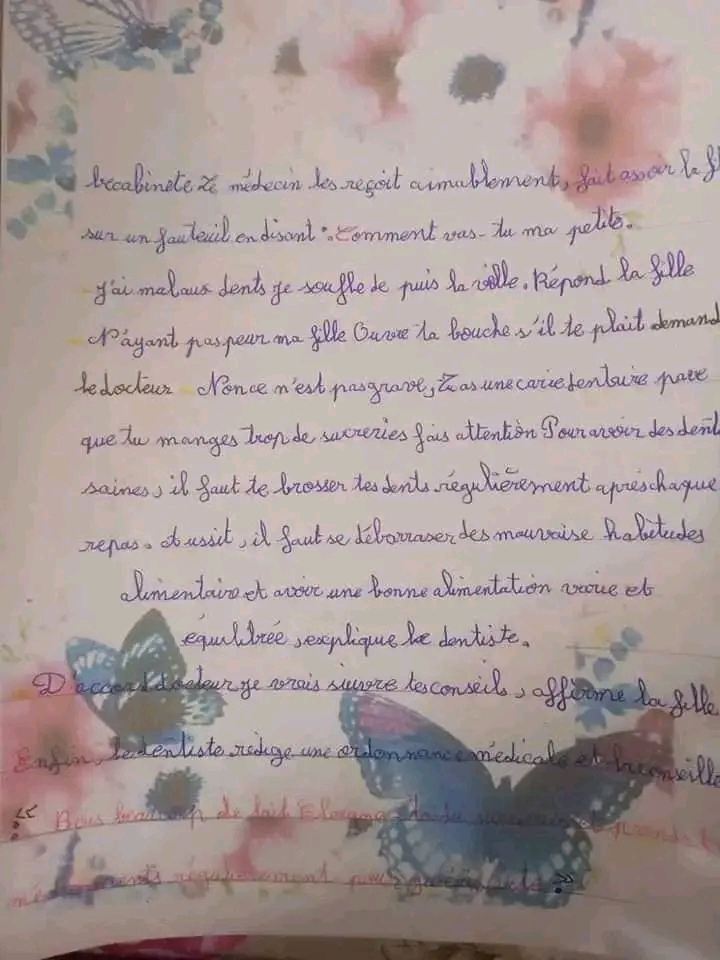 le cabinete Le médecin les reçoit aimablement, fait assoir la
sur un fauteuil en disant : Comment vas-tu ma petite.
J'ai mal aux dents je souffle de puis la veille. Répond la fille
N'ayant pas peur ma fille Ouvre ta bouche s'il te plait demand
le docteur Non ce n'est pas grave, Tu as une carie dentaire parce
que tu manges trop de sucreries fais attention Pour avoir des dent
saines, il faut te brosser tes dents régulièrement après chaque
repas. Aussit, il faut se débarraser des mauvaise habitudes
alimentaire et avoir une bonne alimentation et
équilibrée, explique le dentiste.
D'accord docteur je vrais suivre tes conseils, affirme la fille
Enfin, le dentiste redige une ordonnance médicale et la conseille
: << Bois beaucoup de lait prends
médicaments régulièrement pour >>